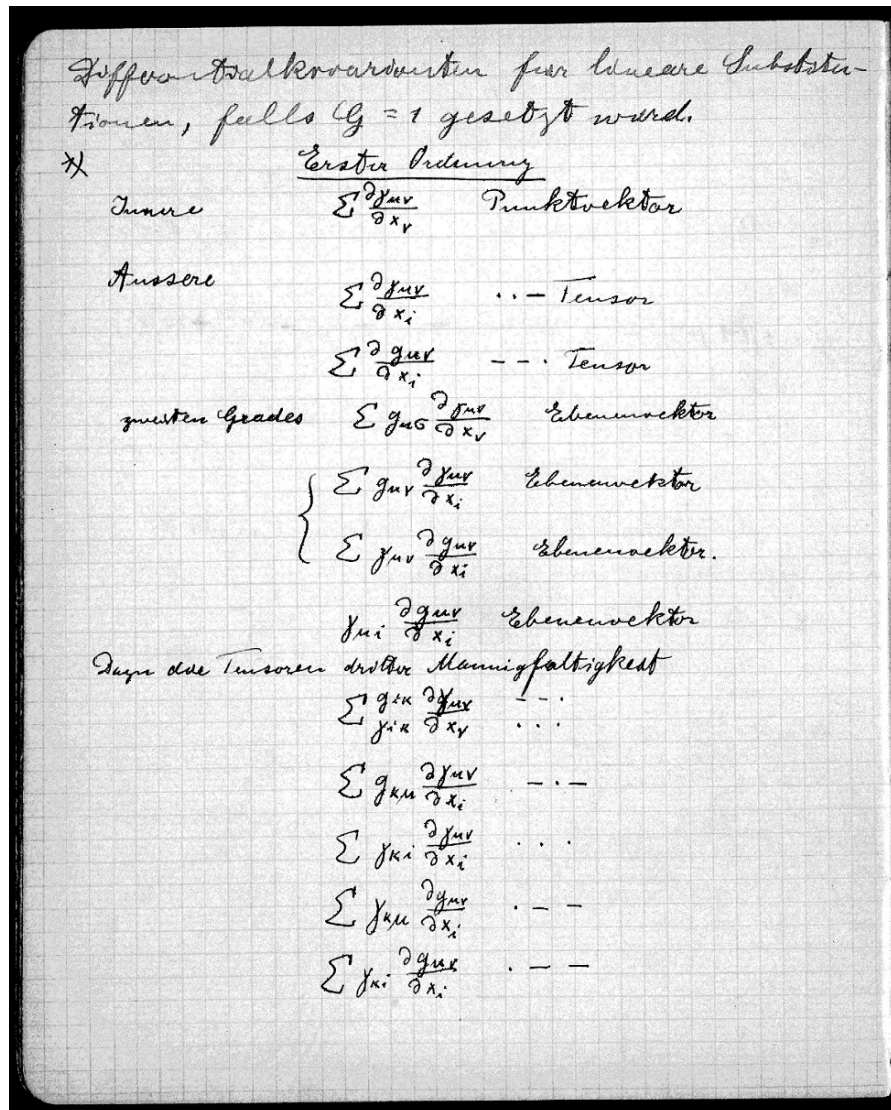 Differentialkovarianten für lineare Substitu-
tionen, falls G = 1 gesetzt wird.
*) Erster Ordnung
Innere ∑ ∂γ_μν/∂x_ν Punktvektor
Äussere ∑ ∂γ_μν/∂x_i ··– Tensor
∑ ∂g_μν/∂x_i ––· Tensor
zweiten Grades ∑ g_μσ ∂γ_μν/∂x_ν Ebenenvektor
∑ g_μν ∂γ_μν/∂x_i Ebenenvektor
∑ γ_μν ∂g_μν/∂x_i Ebenenvektor.
γ_μi ∂g_μν/∂x_i Ebenenvektor
Dazu die Tensoren dritter Mannigfaltigkeit
∑ g_iκ ∂γ_μν/∂x_ν ––·
γ_iκ ···
∑ g_κμ ∂γ_μν/∂x_i –·–
∑ γ_κi ∂γ_μν/∂x_i ···
∑ γ_κμ ∂g_μν/∂x_i ·––
∑ γ_κi ∂g_μν/∂x_i ·––